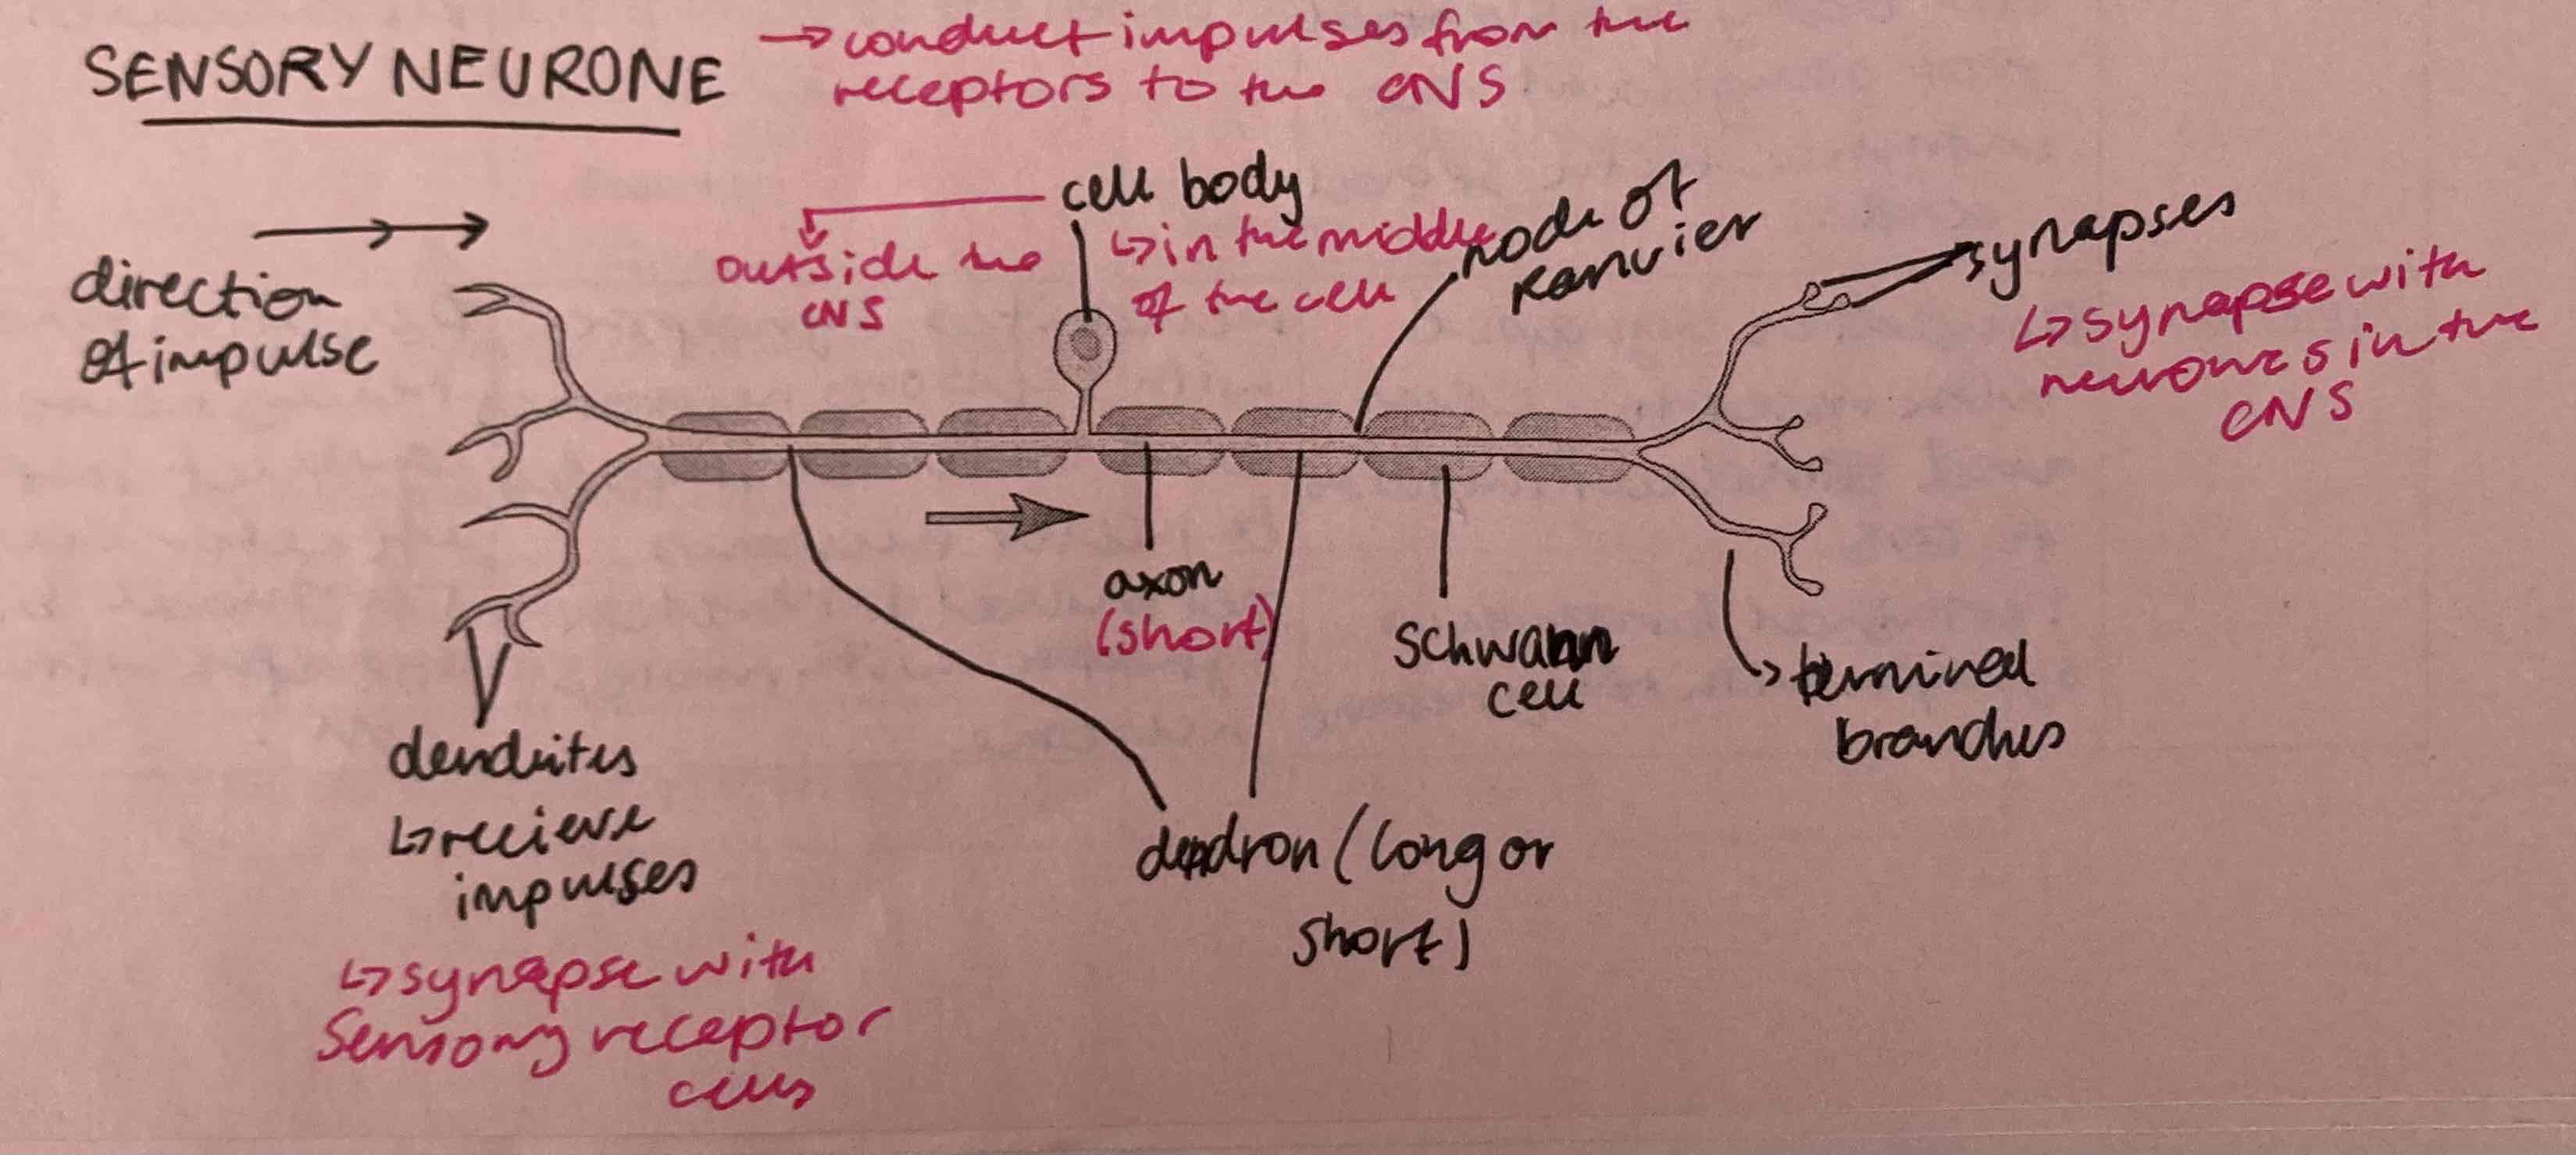 SENSORY NEURONE
→ conduct impulses from the
receptors to the CNS
direction
of impulse
cell body
outside the
CNS
↳ in the middle
of the cell
node of
Ranvier
synapses
↳ synapse with
neurones in the
CNS
axon
(short)
Schwann
cell
terminal
branches
dendrites
↳ recieve
impulses
↳ synapse with
Sensory receptor
cells
dendron (long or
short)